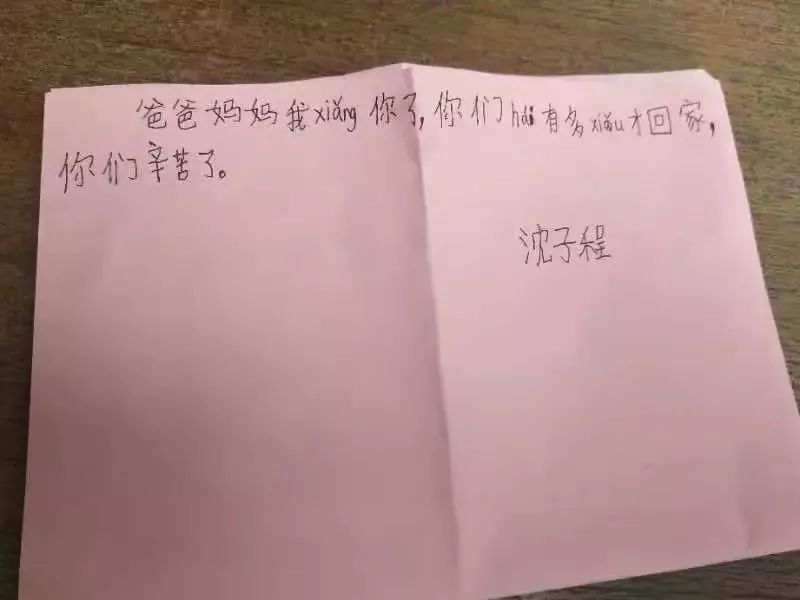 爸爸妈妈我xiǎng你了,你们hái有多xiǎu才回家,
你们辛苦了。
沈子程